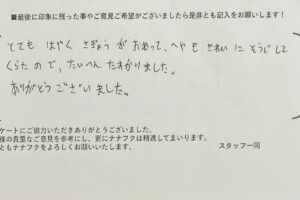 ■最後に印象に残った事やご意見ご希望がございましたら是非とも記入をお願いします！
とても はやく さぎょう が おわって、へや も きれい に とうじ して
くらた ので、たいへん たすかりました。
ありがとう ございました。
ケートにご協力いただきありがとうございました。
様の貴重なご意見を参考にし、更にナナフクは精進してまいります。
ともナナフクをよろしくお願いいたします。
スタッフ一同